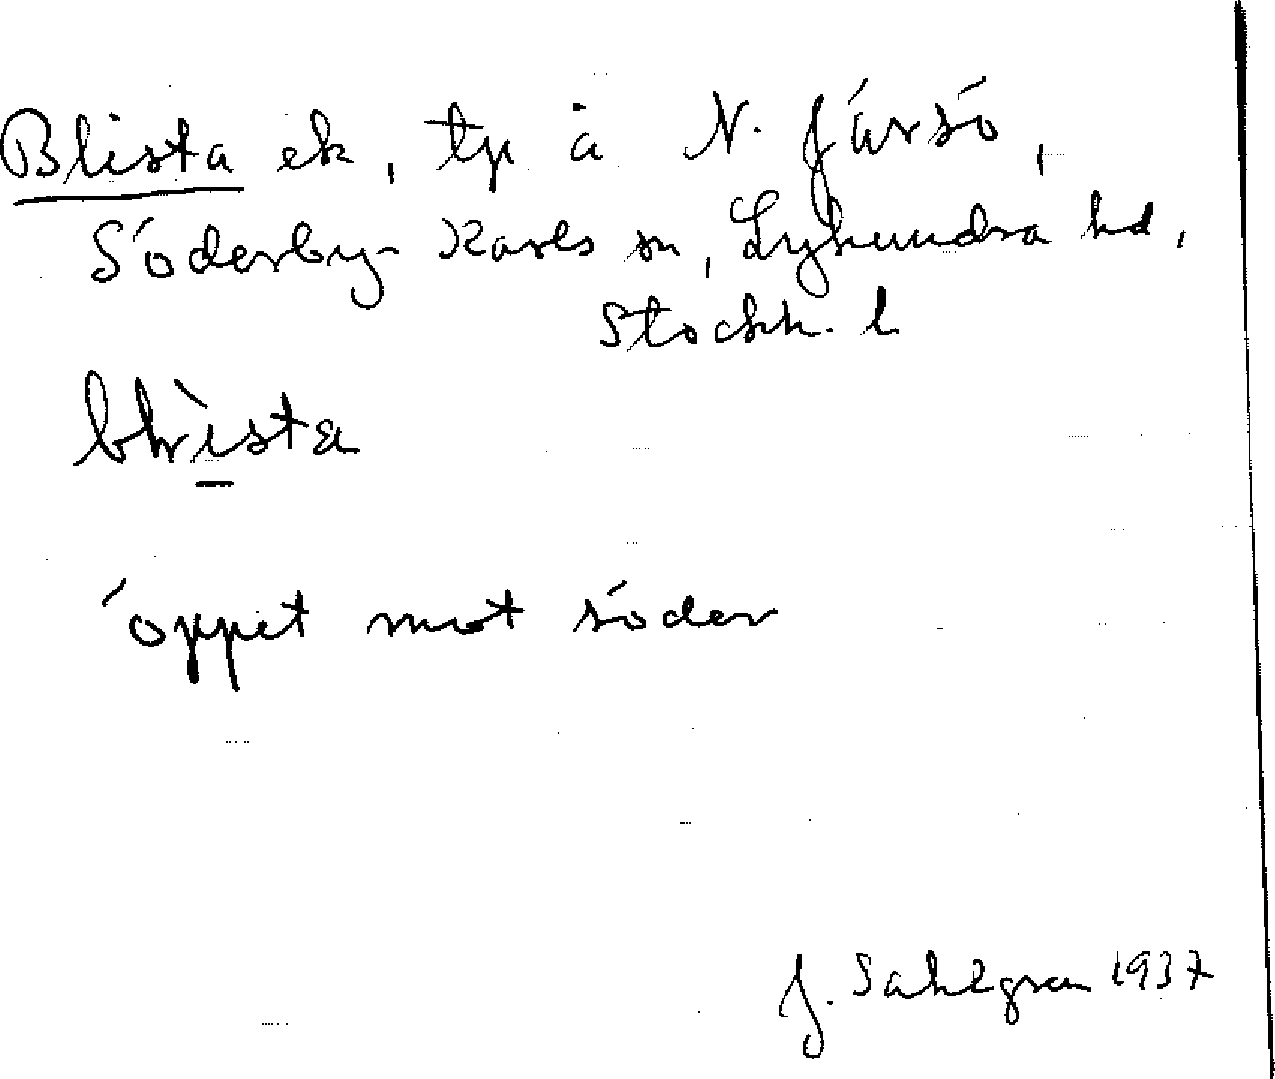 Blista ek, tp å N. Järsö,
Söderby-Karls sn, Lyhundra hd,
Stockh. l
öppet mot söder
J. Sahlgren 1937